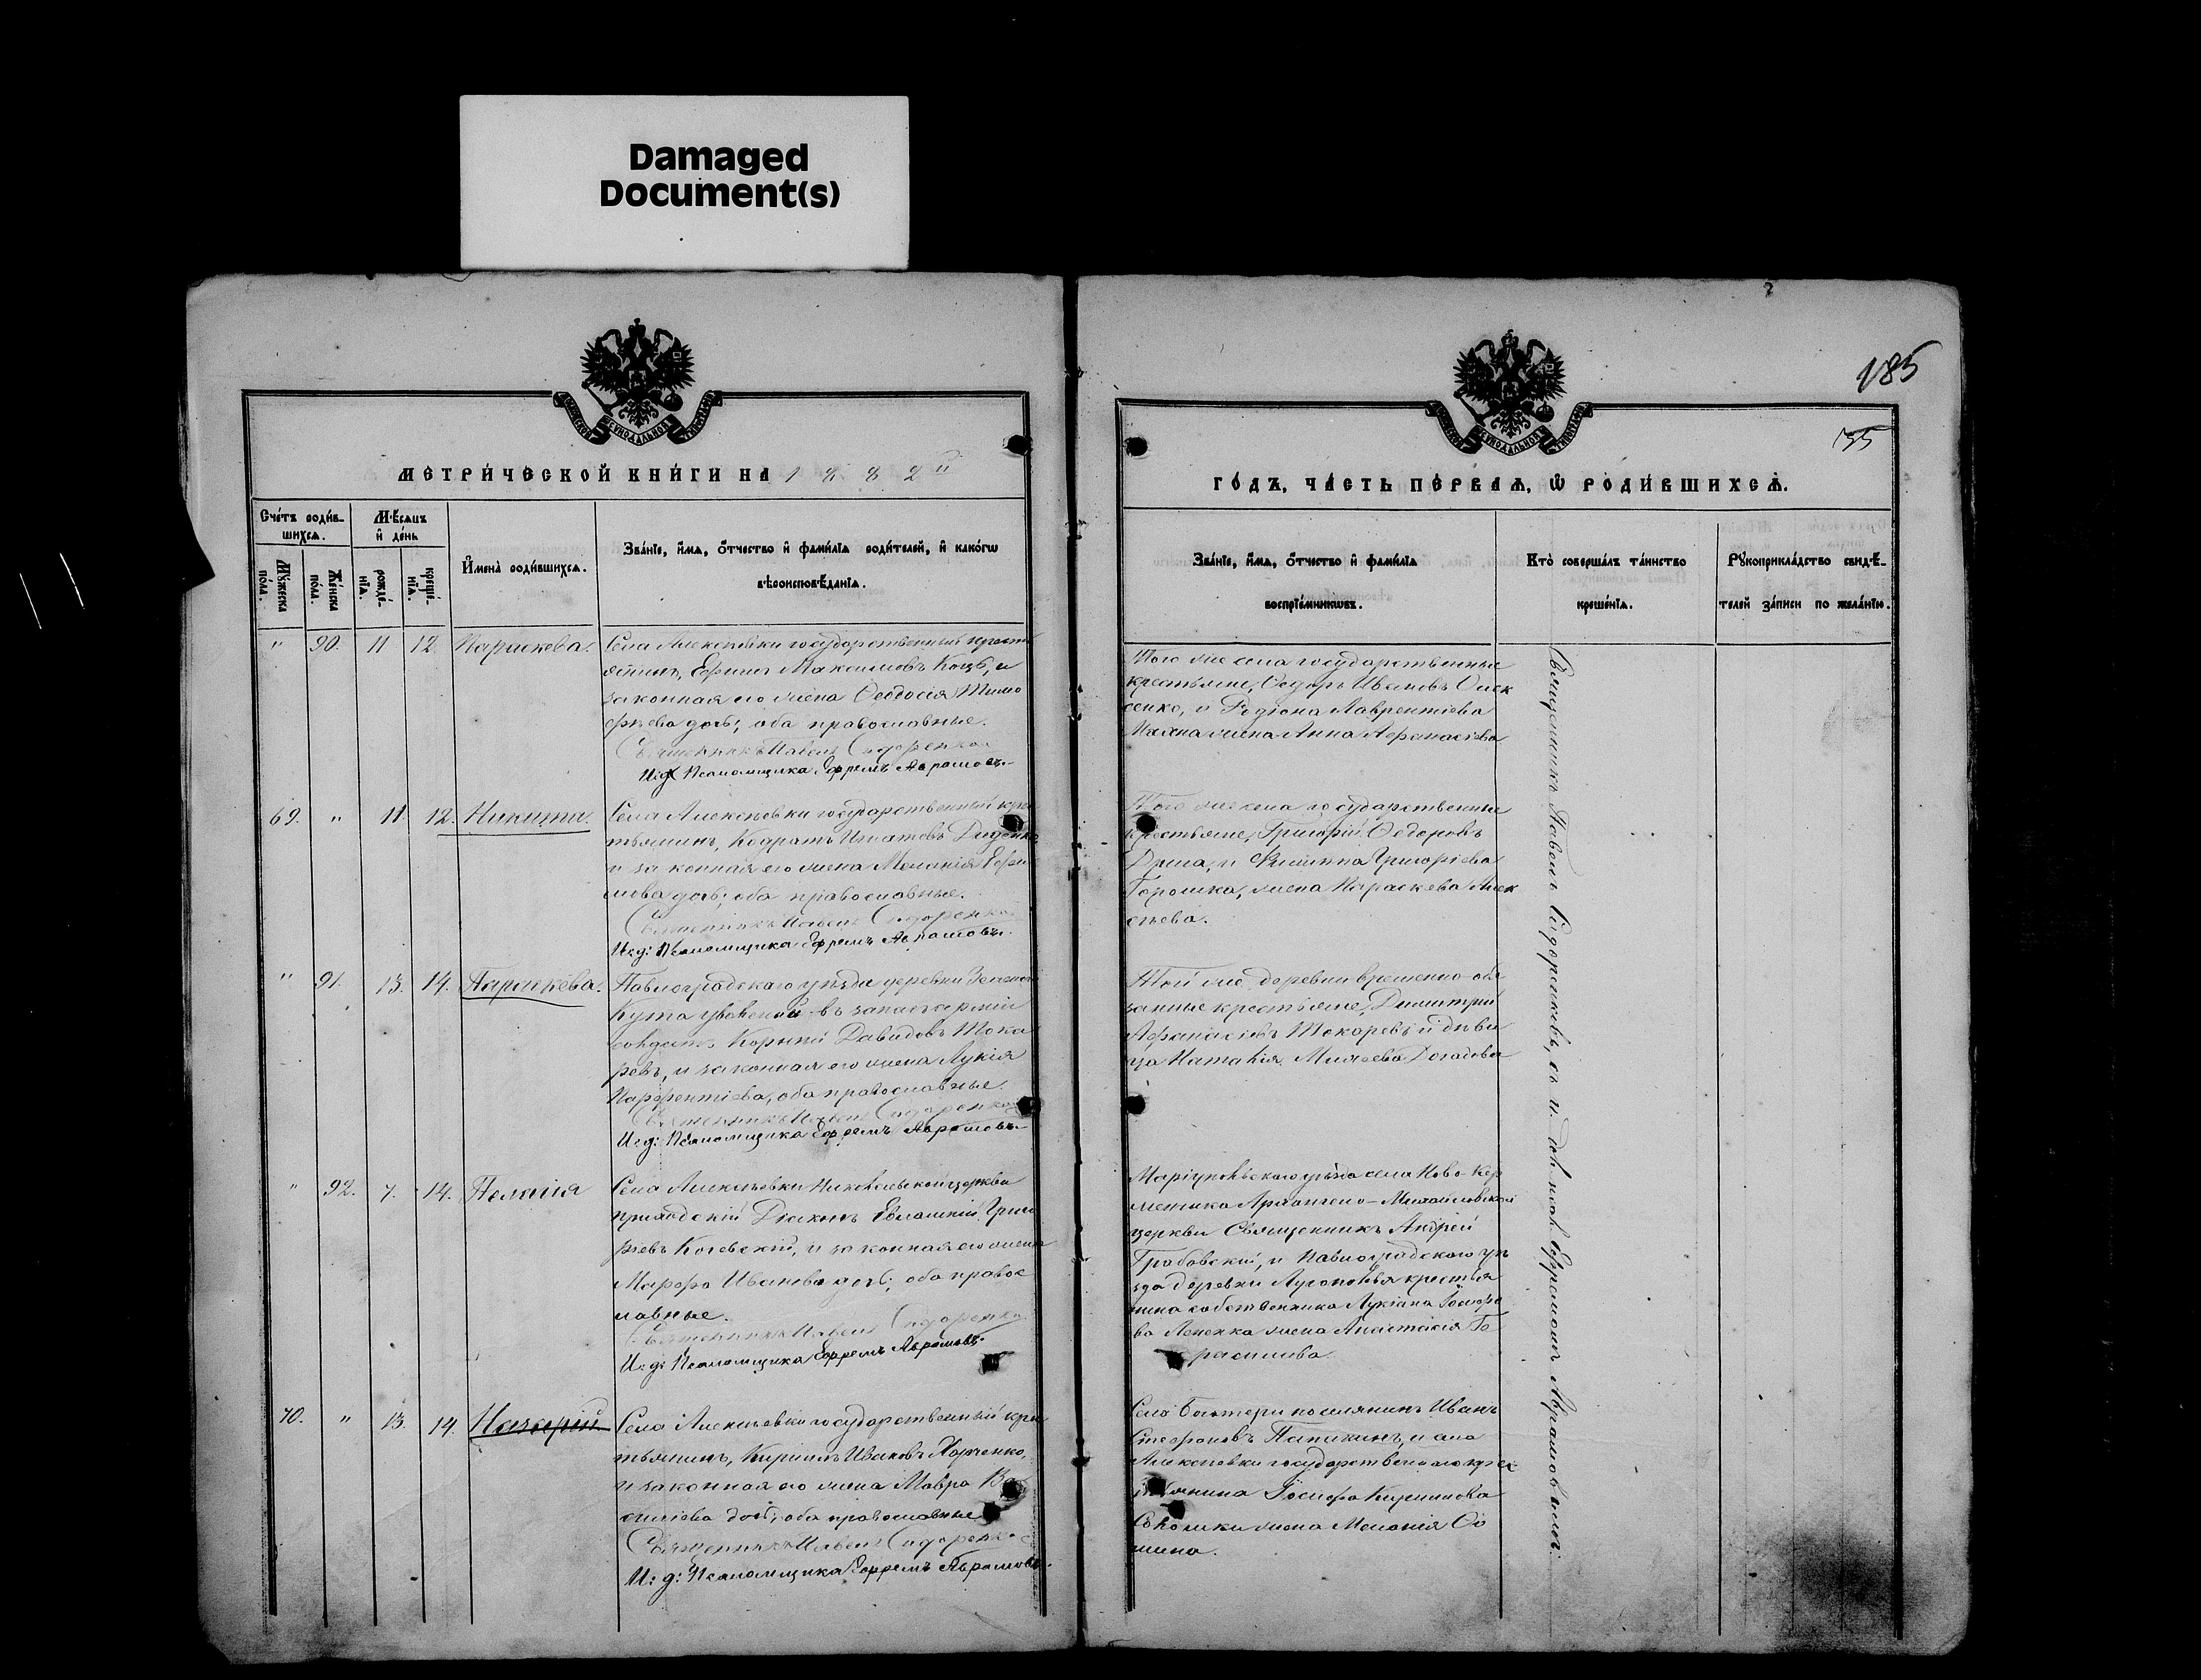 Damaged
Document(s)
185
135
МЕТРИ́ЧЕСКОЙ КНИ́ГИ НА 1882 й
ГО́ДЪ, ЧА́СТЬ ПЕ́РВАЯ, Ѡ РОДИ́ВШИХСЯ.
Сче́тъ роди́в-
шихся.
Мѣ́сяцъ
и҆ де́нь
Му́жеска
по́ла.
Же́нска
по́ла.
рожде́-
нїя.
креще́-
нїя.
И҆мена̀ роди́вшихся.
Зва́нїе, и҆́мя, ѻ҆́тчество и҆ фами́лїя роди́телей, и҆ како́гѡ
вѣроисповѣ́данїя.
Зва́нїе, и҆́мя, ѻ҆́тчество и҆ фами́лїя
воспрїе́мникѡвъ.
Кто̀ соверша́лъ та́инство
креще́нїя.
Рꙋкоприкла́дство свидѣ́-
телей за́писи по жела́нїю.
" 90. 11 12 Параскева.
Села Алексѣевки государственный кресть
янинъ, Ефимъ Максимовъ Коцъ, и
законная его жена Ѳеодосія Тимо
фѣева дочь; оба православные.
Священникъ Павелъ Сидоренковъ
И:д: Псаломщика Ефремъ Аврамовъ.
Того же села государственные
крестьяне, Ѳедоръ Ивановъ Олек
сенко, и Родіона Лаврентіева
жена Анна Афанасіева
69. " 11 12. Никита.
Села Алексѣевки государственный крес
тьянинъ, Кодратъ Игнатовъ Диденко
и законная его жена Меланія Ефи
мова дочь; оба православные.
Священникъ Павелъ Сидоренковъ
И:д: Псаломщика Ефремъ Аврамовъ.
Того же села государственные
крестьяне, Григорій Ѳедоровъ
и Филиппа Григоріева
Горошка, жена Параскева Алек
сѣева.
" 91. 13. 14. Параскева.
Павлоградскаго уѣзда деревни Зеленаго
Кута уволенный въ запасъ арміи
солдатъ Корнилій Давидовъ Тока
ревъ, и законная его жена Лукія
Парфентіева, оба православные.
Священникъ Павелъ Сидоренковъ
И:д: Псаломщика Ефремъ Аврамовъ.
Той же деревни временно-обя
занные крестьяне, Димитрій
Афанасіевъ Токаревъ и дѣви
ца Наталія
" 92. 7. 14. Пелагія
Села Алексѣевки Николаевской церкви
Діаконъ Евлампій Григо
рьевъ Котевскій, и законная его жена
Марфа Иванова дочь; оба правос
лавные.
Священникъ Павелъ Сидоренковъ
И:д: Псаломщика Ефремъ Аврамовъ.
Маріупольскаго уѣзда села Ново-Кер
менчика Архангело-Михайловской
церкви Священникъ Андрей
Грабовскій, и Павлоградскаго уѣ
зда деревни крестья
нина собственника Лукіана Іосифо
ва жена Анастасія Ге
расимова.
70. " 13. 14. Назарій
Села Алексѣевки государственный крес
тьянинъ, Кириллъ Ивановъ Марченко,
и законная его жена Мавра Ва
силіева дочь, оба православные
Священникъ Павелъ Сидоренковъ
И:д: Псаломщика Ефремъ Аврамовъ.
Села поселянинъ Иванъ
Стефановъ и села
Алексѣевки государственнаго крес
тьянина Іосифа Кириллова
жена Меланія Ѳо
мина.
Священникъ Павелъ Сидоренковъ, съ и. дол. псал. Ефремомъ Аврамовымъ.